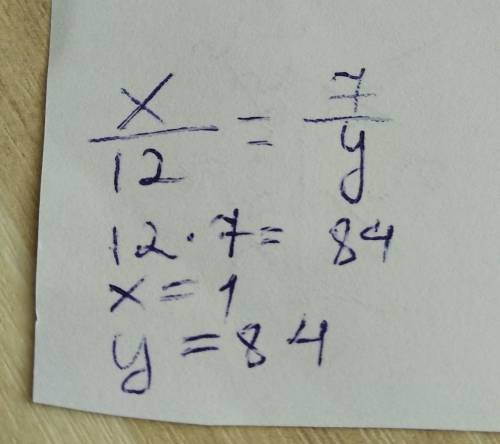 x/12 = 7/y
12·7= 84
x=1
y=84